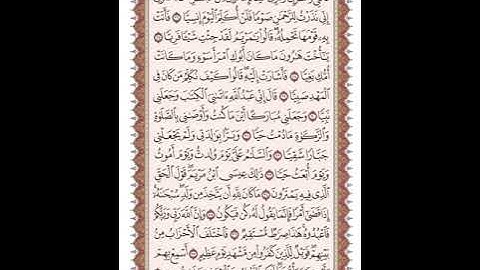 إِنِّي نَذَرْتُ لِلرَّحْمَٰنِ صَوْمًا فَلَنْ أُكَلِّمَ ٱلْيَوْمَ إِنسِيًّا ۝ فَأَتَتْ
بِهِۦ قَوْمَهَا تَحْمِلُهُۥ ۖ قَالُوا۟ يَٰمَرْيَمُ لَقَدْ جِئْتِ شَيْـًٔا فَرِيًّا ۝
يَٰٓأُخْتَ هَٰرُونَ مَا كَانَ أَبُوكِ ٱمْرَأَ سَوْءٍ وَمَا كَانَتْ
أُمُّكِ بَغِيًّا ۝ فَأَشَارَتْ إِلَيْهِ ۖ قَالُوا۟ كَيْفَ نُكَلِّمُ مَن كَانَ فِي
ٱلْمَهْدِ صَبِيًّا ۝ قَالَ إِنِّي عَبْدُ ٱللَّهِ ءَاتَىٰنِيَ ٱلْكِتَٰبَ وَجَعَلَنِي
نَبِيًّا ۝ وَجَعَلَنِي مُبَارَكًا أَيْنَ مَا كُنتُ وَأَوْصَٰنِي بِٱلصَّلَوٰةِ
وَٱلزَّكَوٰةِ مَا دُمْتُ حَيًّا ۝ وَبَرًّۢا بِوَٰلِدَتِي وَلَمْ يَجْعَلْنِي
جَبَّارًا شَقِيًّا ۝ وَٱلسَّلَٰمُ عَلَيَّ يَوْمَ وُلِدتُّ وَيَوْمَ أَمُوتُ
وَيَوْمَ أُبْعَثُ حَيًّا ۝ ذَٰلِكَ عِيسَى ٱبْنُ مَرْيَمَ ۚ قَوْلَ ٱلْحَقِّ
ٱلَّذِي فِيهِ يَمْتَرُونَ ۝ مَا كَانَ لِلَّهِ أَن يَتَّخِذَ مِن وَلَدٍ ۖ سُبْحَٰنَهُۥٓ ۚ
إِذَا قَضَىٰٓ أَمْرًا فَإِنَّمَا يَقُولُ لَهُۥ كُن فَيَكُونُ ۝ وَإِنَّ ٱللَّهَ رَبِّي وَرَبُّكُمْ
فَٱعْبُدُوهُ ۚ هَٰذَا صِرَٰطٌ مُّسْتَقِيمٌ ۝ فَٱخْتَلَفَ ٱلْأَحْزَابُ مِنۢ
بَيْنِهِمْ ۖ فَوَيْلٌ لِّلَّذِينَ كَفَرُوا۟ مِن مَّشْهَدِ يَوْمٍ عَظِيمٍ ۝ أَسْمِعْ بِهِمْ